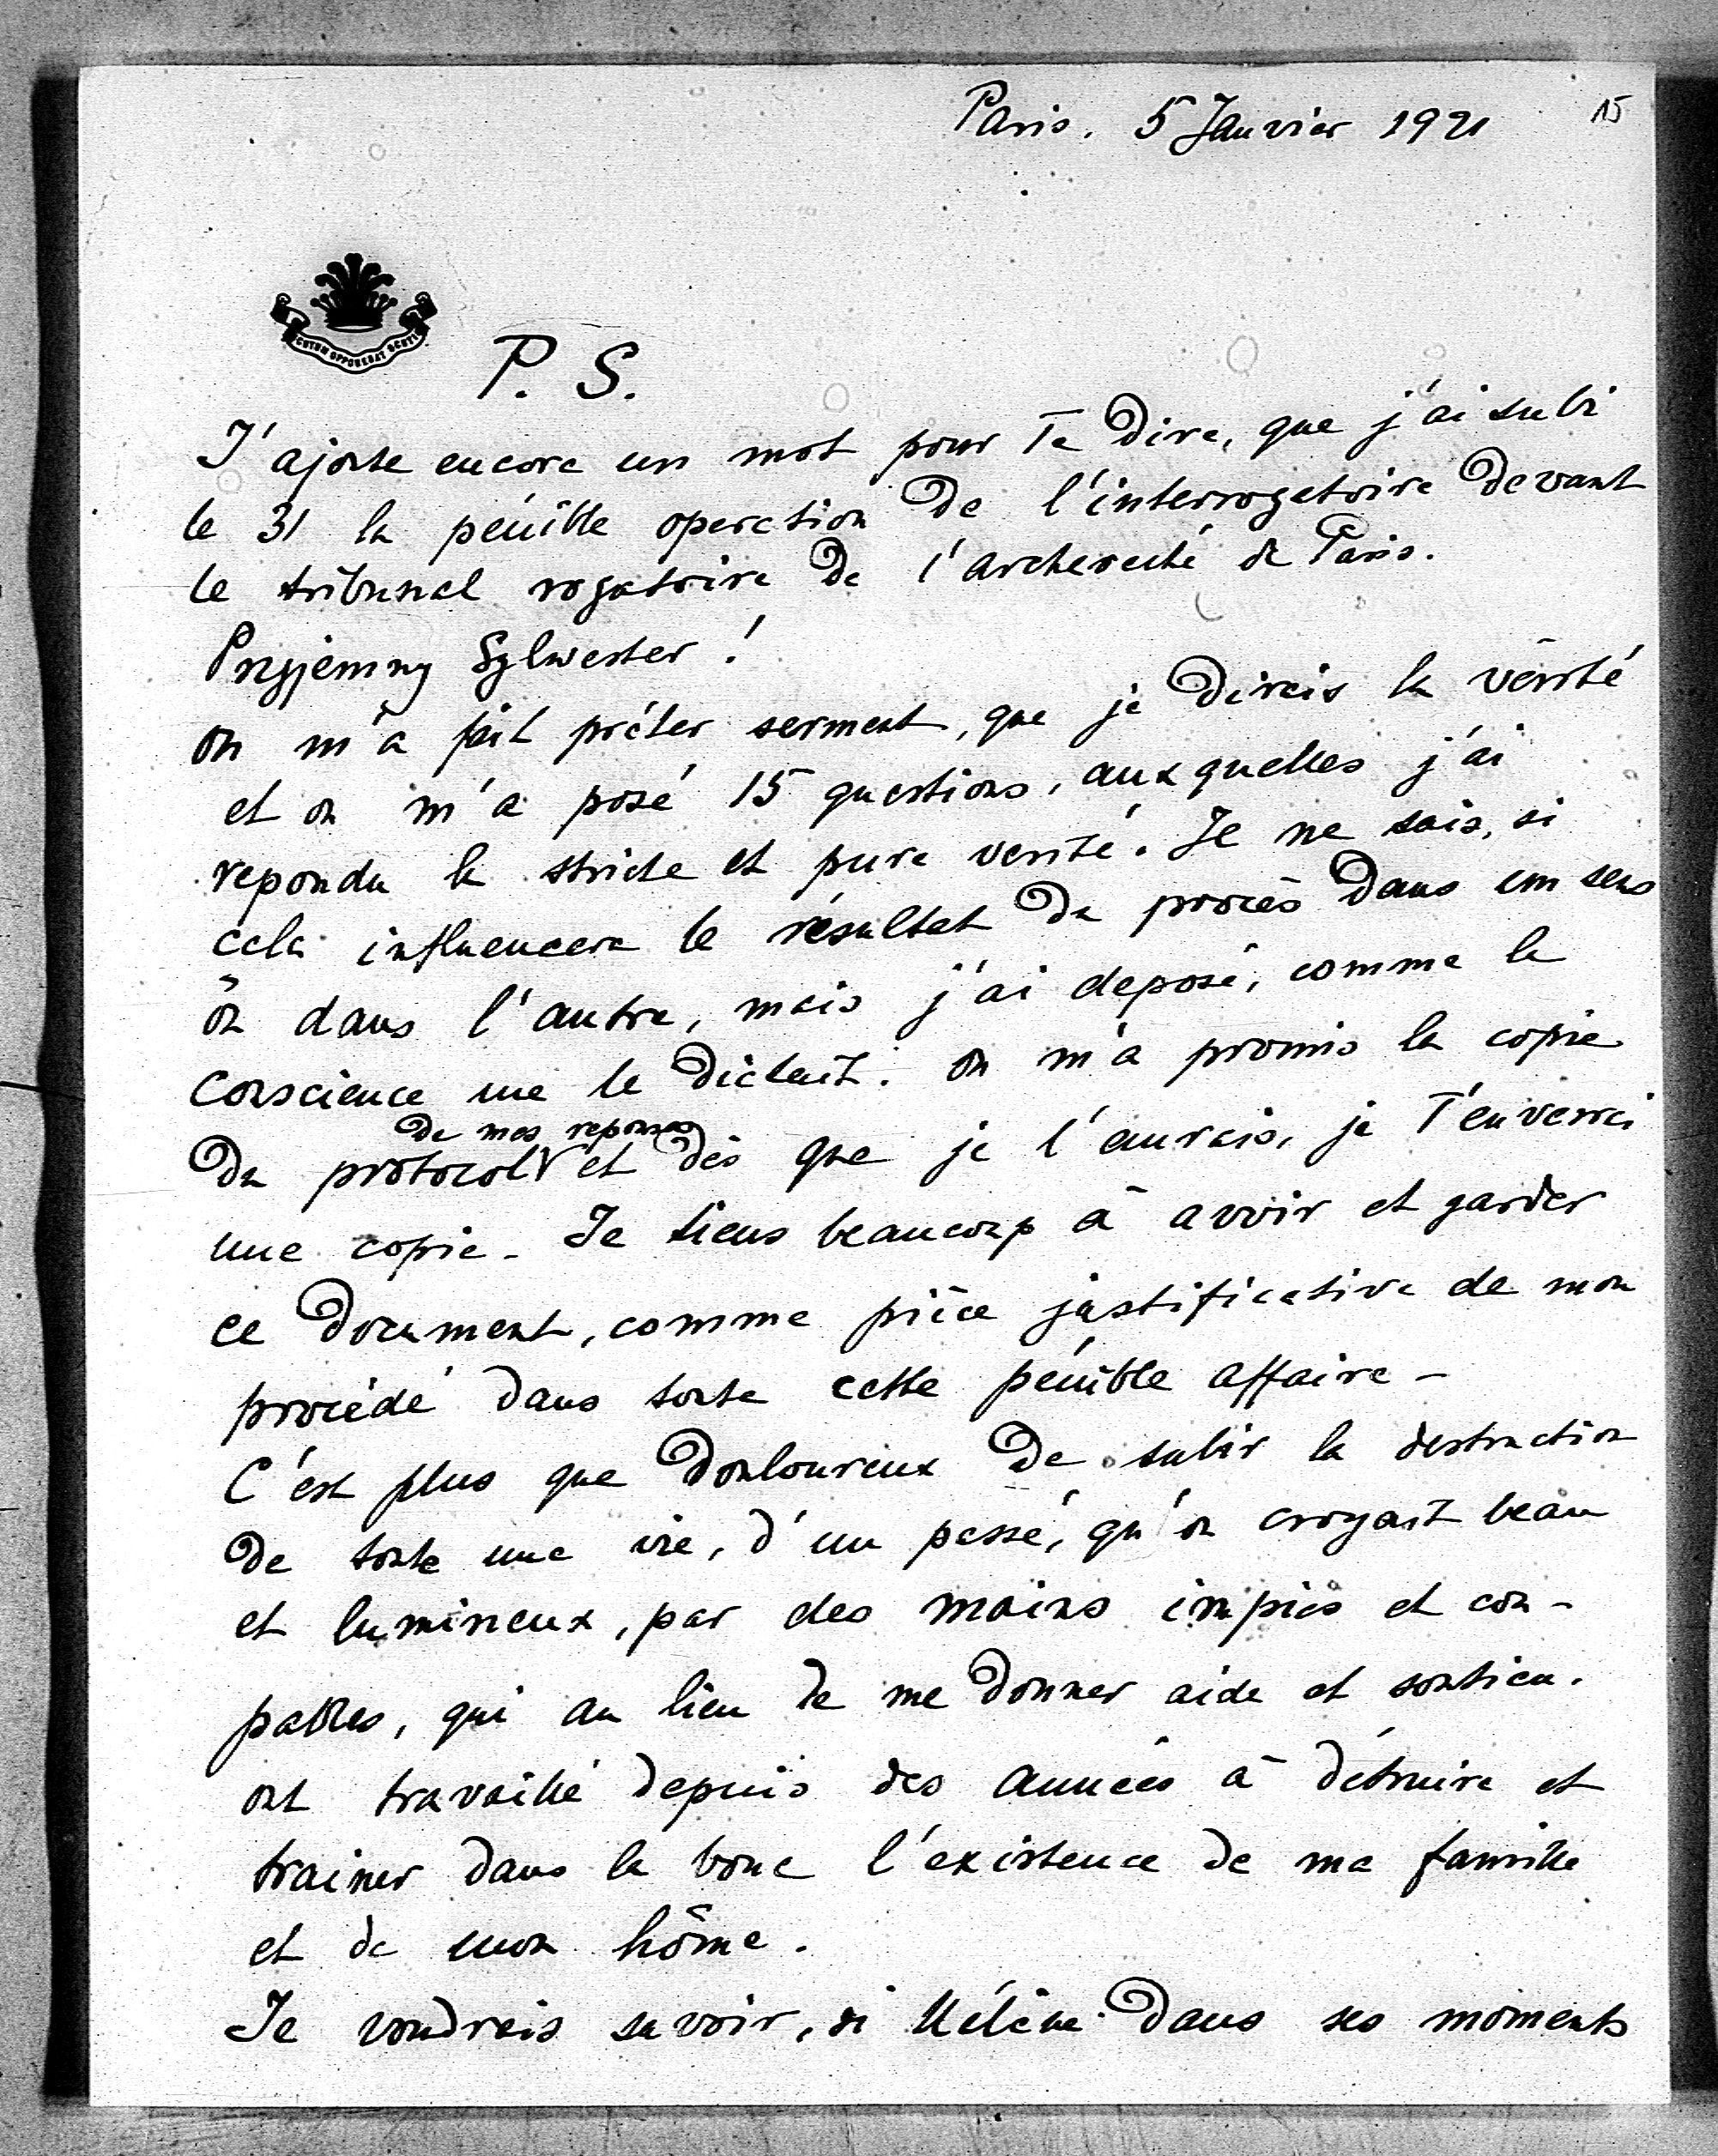 Paris. 5 Janvier 1921
15
SCUTUM OPPONEBAT SCUTIS
P. S.
J'ajoute encore un mot pour Te dire, que j'ai subi
le 31 la pénible operation de l'interrogatoire devant
le tribunal rogatoire de l'archeveché de Paris.
Przyjemny Sylwester !
On m'a fait prêter serment, que je dirais la vérité
et on m'a posé 15 questions, auxquelles j'ai
repondu la stricte et pure verité. Je ne sais, si
cela influencera le résultat du procès dans un sens
ou dans l'autre, mais j'ai deposé, comme la
conscience me le dictait. On m'a promis la copie
de mes reponses
du protocol et dès que je l'aurais, je T'enverrai
une copie - Je tiens beaucoup à avoir et garder
ce document, comme pièce justificative de mon
procédé dans toute cette pénible affaire -
C'est plus que douloureux de subir la destruction
de toute une vie, d'un passé, qu'on croyait beau
et lumineux, par des mains impies et cou-
pables, qui au lieu de me donner aide et soutien.
ont travaillé depuis des années à détruire et
trainer dans la boue l'existence de ma famille
et de mon hôme.
Je voudrais savoir, si Hélène dans ses moments